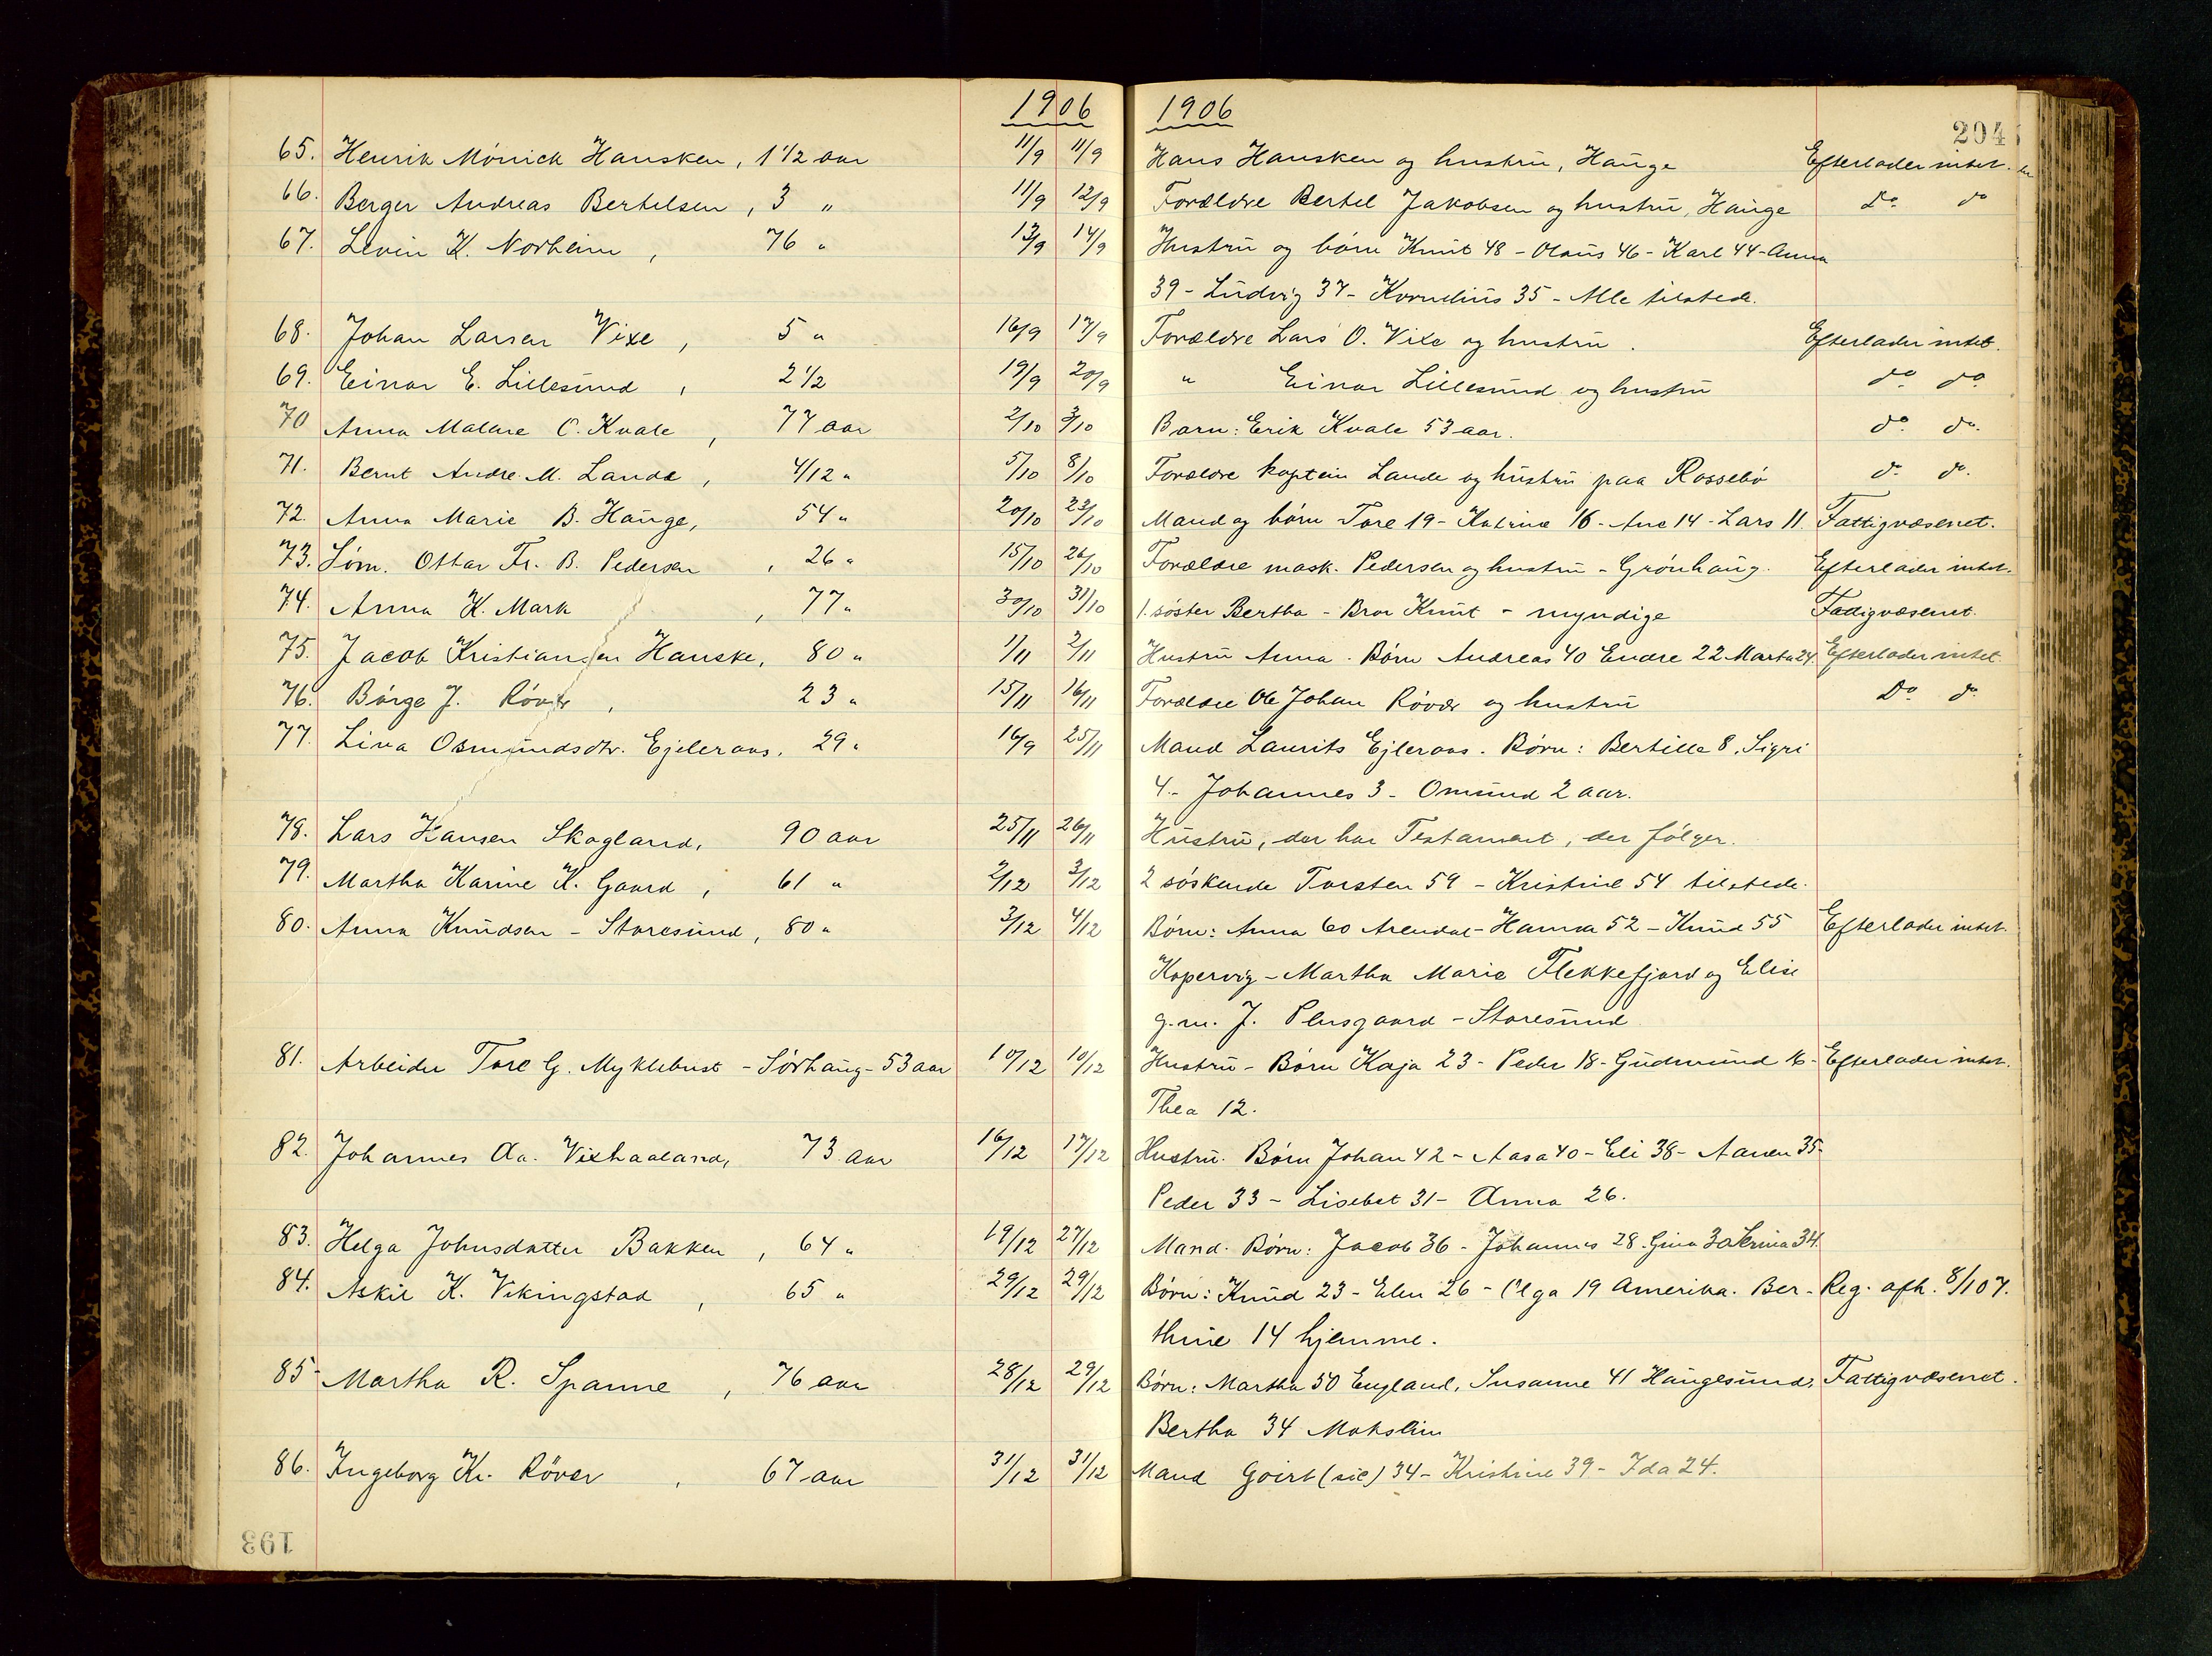 1906 1906
204
65. Henrik Mönich Hansken, 1 1/2 aar 11/9 11/9 Hans Hansken og hustru, Hauge Efterlader intet.
66. Berger Andreas Bertelsen, 3 " 11/9 12/9 Forældre Bertel Jakobsen og hustru, Hauge Do do
67. Levin K. Norheim, 76 " 13/9 14/9 Hustru og börn Knut 48 - Olaus 46 - Karl 44 - Anna
39 - Ludvig 37 - Kornelius 35 - Alle tilstede.
68. Johan Larsen Vixe, 5 " 16/9 17/9 Forældre Lars O. Vixe og hustru. Efterlader intet.
69. Einar E. Lillesund, 2 1/2 19/9 20/9 " Einar Lillesund og hustru do do
70 Anna Malene C. Kvale, 77 aar 2/10 3/10 Barn: Erik Kvale 53 aar. do do.
71. Bernt Andre. M. Lande, 4/12 " 5/10 8/10 Forældre kaptein Lande og hustru paa Rossebö do do.
72. Anna Marie B. Hauge, 54 " 20/10 23/10 Mand og börn Tore 19 - Katrine 16 - Ane 14 - Lars 11. Fattigvæsenet.
73. Söm. Ottar Fr. B. Pedersen, 26 " 15/10 26/10 Forældre mask. Pedersen og hustru - Grönhaug. Efterlader intet.
74. Anna K. Mark, 77 " 30/10 31/10 1. söster Bertha - Bror Knut - myndige Fattigvæsenet.
75. Jacob Kristiansen Hanske, 80 " 1/11 2/11 Hustru Anna. Börn Andreas 40 Endre 22 Marta 24. Efterlader intet
76. Börge J. Rövær, 23 " 15/11 16/11 Forældre Ole Johan Rövær og hustru Do do
77. Lina Osmundsdtr. Ejeleraas, 29 " 16/9 25/11 Mand Laurits Ejleraas. Börn: Bertille 8, Sigri
4. - Johannes 3 - Omund 2 aar.
78. Lars Hansen Skogland, 90 aar 25/11 26/11 Hustru, der har Testament, der fölger.
79. Martha Karine K. Gaard, 61 " 2/12 3/12 2 söskende Torsten 59 - Kristine 54 tilstede.
80. Anna Knudsen - Storesund, 80 " 3/12 4/12 Börn: Anna 60 Arendal - Hanna 52 - Knud 55 Efterlader intet.
Kopervig - Martha Marie Flekkefjord og Elise
g.m. J. Plusgaard - Storesund
81. Arbeider Tore G. Myklebust - Sörhaug - 53 aar 10/12 10/12 Hustru - Börn Kaja 23 - Peder 18 - Gudmund 16 - Efterlader intet.
Thea 12.
82. Johannes Aa. Vixhaaland, 73 aar 16/12 17/12 Hustru. Börn Johan 42 - Aasa 40 - Eli 38 - Aanen 35 -
Peder 33 - Lisebet 31 - Anna 26.
83. Helga Johnsdatter Bakken, 64 " 19/12 27/12 Mand. Börn: Jacob 36 - Johannes 28. Gina 30 Trina 34.
84. Askil K. Vikingstad, 65 " 29/12 29/12 Börn: Knud 23 - Elen 26 - Olga 19 Amerika. Ber- Reg. afh. 8/1 07.
thine 14 hjemme.
85 - Martha R. Spanne, 76 aar 28/12 29/12 Börn: Martha 50 England, Susanne 41 Haugesund, Fattigvæsenet.
Bertha 34 Mokslin
86. Ingeborg Kr. Rövær, 67 aar 31/12 31/12 Mand Goirt (sic) 34 - Kristine 39 - Ida 24.
193